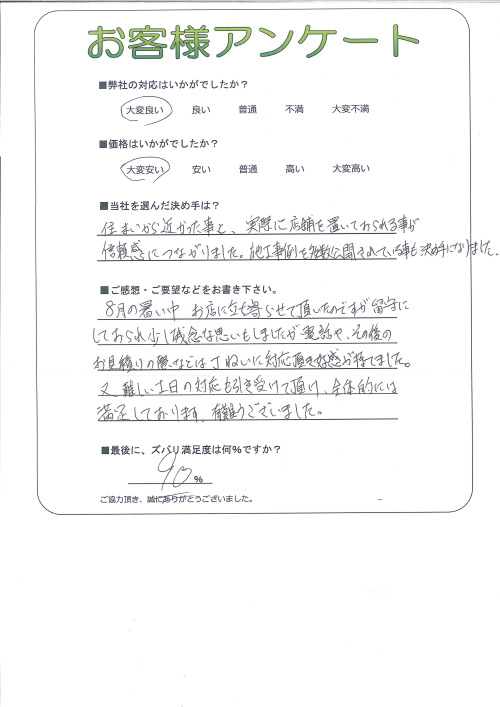 お客様アンケート
■弊社の対応はいかがでしたか？
大変良い 良い 普通 不満 大変不満
■価格はいかがでしたか？
大変安い 安い 普通 高い 大変高い
■当社を選んだ決め手は？
住まいから近かった事と、実際に店舗を置いておられる事が
信頼感につながりました。施工事例を多数公開されている事も決め手になりました。
■ご感想・ご要望などをお書き下さい。
8月の暑い中 お店に立ち寄らせて頂いたのですが留守に
しておられ少し残念な思いもしましたが電話や、その後の
お見積りの際などは丁ねいに対応頂き好感が持てました。
又、難しい土日の対応も引き受けて頂け、全体的には
満足しております。有難うございました。
■最後に、ズバリ満足度は何％ですか？
90 %
ご協力頂き、誠にありがとうございました。